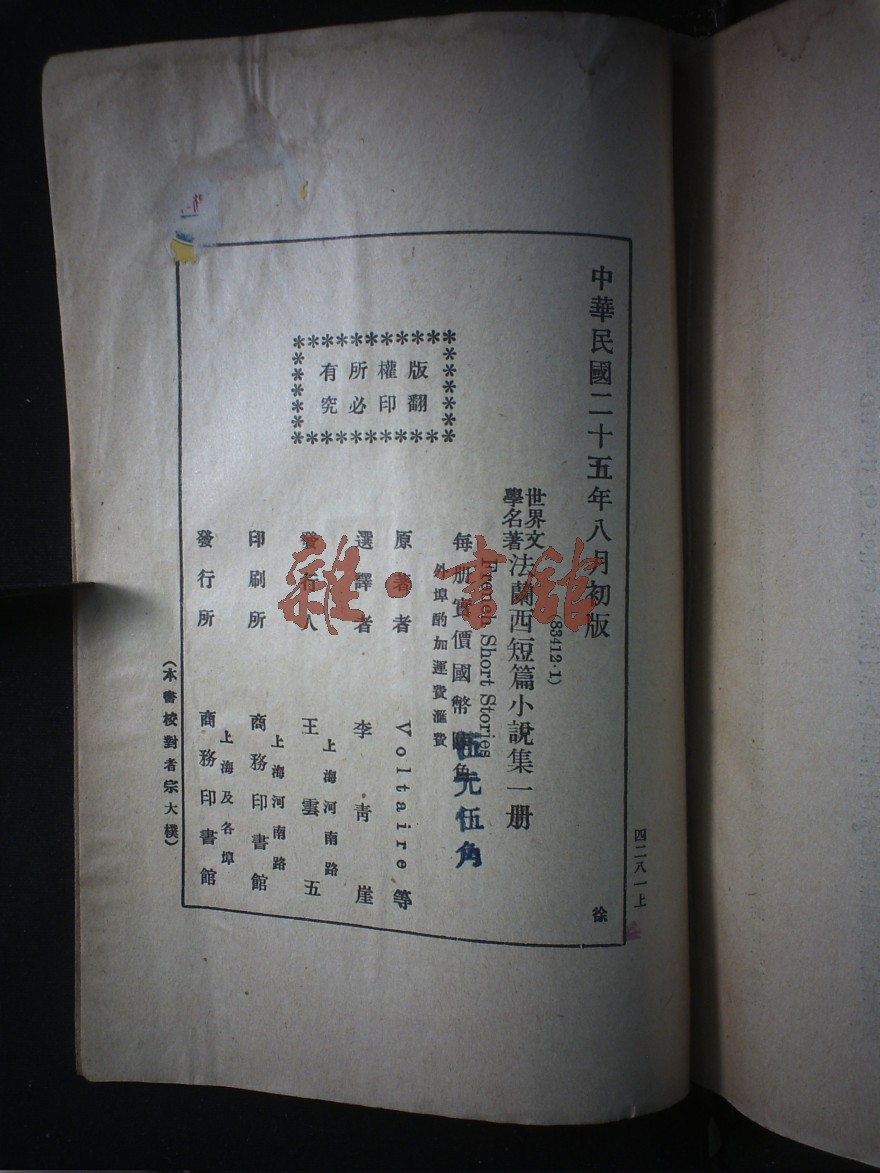 四二八一上
中華民國二十五年八月初版
徐
(83412·1)
世界文學名著
法蘭西短篇小說集一册
French Short Stories
每册實價國幣
角
伍元伍角
外埠酌加運費滙費
版權所有
翻印必究
原著者 Voltaire等
選譯者 李青崖
發行人 王雲五
上海河南路
印刷所 商務印書館
上海河南路
發行所 商務印書館
上海及各埠
(本書校對者宗大樸)
雜·書館